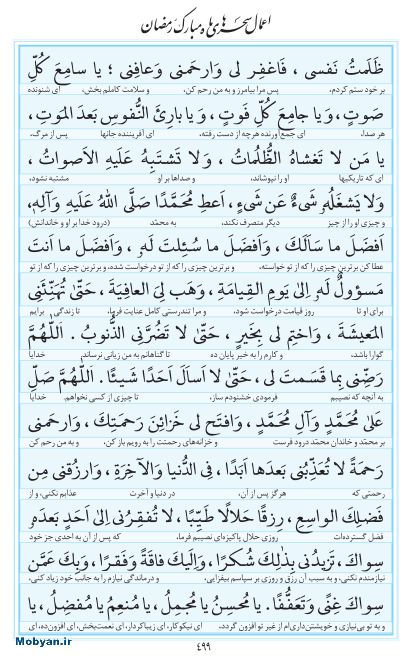 اعمال سحرهای ماه مبارک رمضان
ظَلَمتُ نَفسی ، فَاغفِر لی وَارحَمنی وَعافِنی ؛ یا سامِعَ کُلِّ
بر خود ستم کردم، پس مرا بیامرز و به من رحم کن، و سلامت کاملم بخش، ای شنونده
صَوتٍ، وَیا جامِعَ کُلِّ فَوتٍ، وَیا بارِئَ النُّفوسِ بَعدَ المَوتِ،
هر صدا، ای جمع‌آورنده هرچه از دست رفته، ای آفریننده جانها پس از مرگ،
یا مَن لا تَغشاهُ الظُّلُماتُ ، وَلا تَشتَبِهُ عَلَیهِ الاَصواتُ ،
ای که تاریکیها او را نپوشاند، و صداها بر او مشتبه نشود،
وَلا یَشغَلُهُ شَیءٌ عَن شَیءٍ، اَعطِ مُحَمَّدًا صَلَّی اللهُ عَلَیهِ وَآلِهِ،
و چیزی او را از چیز دیگر منصرف نکند، به محمّد (درود خدا بر او و خاندانش)
اَفضَلَ ما سَاَلَکَ، وَاَفضَلَ ما سُئِلتَ لَهُ ، وَاَفضَلَ ما اَنتَ
عطا کن برترین چیزی را که از تو خواسته، و برترین چیزی را که از تو درخواست شده، و برترین چیزی را که از تو
مَسؤولٌ لَهُ اِلی یَومِ القِیامَةِ، وَهَب لِیَ العافِیَةَ، حَتّی تُهَنِّئَنِی
برای او تا روز قیامت درخواست شود، و مرا تندرستی کامل عنایت فرما، تا زندگی برایم
المَعیشَةَ ، وَاختِم لی بِخَیرٍ، حَتّی لا تَضُرَّنِی الذُّنوبُ . اَللّٰهُمَّ
گوارا باشد، و کارم را به خیر پایان ده تا گناهانم به من زیانی نرساند، خدایا
رَضِّنی بِما قَسَمتَ لی، حَتّی لا اَسأَلَ اَحَدًا شَیئًا. اَللّٰهُمَّ صَلِّ
مرا به آنچه که نصیبم فرمودی خشنودم ساز، تا چیزی از کسی نخواهم. خدایا
عَلیٰ مُحَمَّدٍ وَآلِ مُحَمَّدٍ، وَافتَح لی خَزائِنَ رَحمَتِکَ، وَارحَمنی
بر محمّد و خاندان محمّد درود فرست و خزانه‌های رحمتت را به رویم باز کن، و به من رحم کن
رَحمَةً لا تُعَذِّبُنی بَعدَها اَبَدًا ، فِی الدُّنیا وَالآخِرَةِ، وَارزُقنی مِن
رحمتی که هرگز پس از آن، در دنیا و آخرت عذابم نکنی، و از
فَضلِکَ الواسِعِ، رِزقًا حَلالًا طَیِّبًا، لا تُفقِرُنی اِلیٰ اَحَدٍ بَعدَهُ
فضل گسترده‌ات روزی حلال پاکیزه‌ای نصیبم فرما، که پس از آن به احدی جز خود
سِواکَ، تَزیدُنی بِذٰلِکَ شُکرًا، وَاِلَیکَ فاقَةً وَفَقرًا، وَبِکَ عَمَّن
نیازمندم نکنی، و به سبب آن رزق و روزی بر سپاسم بیفزایی، و درماندگی نیازم را به جانب خود زیاد کنی،
سِواکَ غِنًی وَتَعَفُّفًا. یا مُحسِنُ یا مُجمِلُ، یا مُنعِمُ یا مُفضِلُ، یا
و به تو بی‌نیازی و خویشتن‌داری‌ام از غیر تو افزون گردد. ای نیکوکار، ای زیباکردار، ای نعمت‌بخش، ای افزون‌ده، ای
۴۹۹
Mobyan.ir